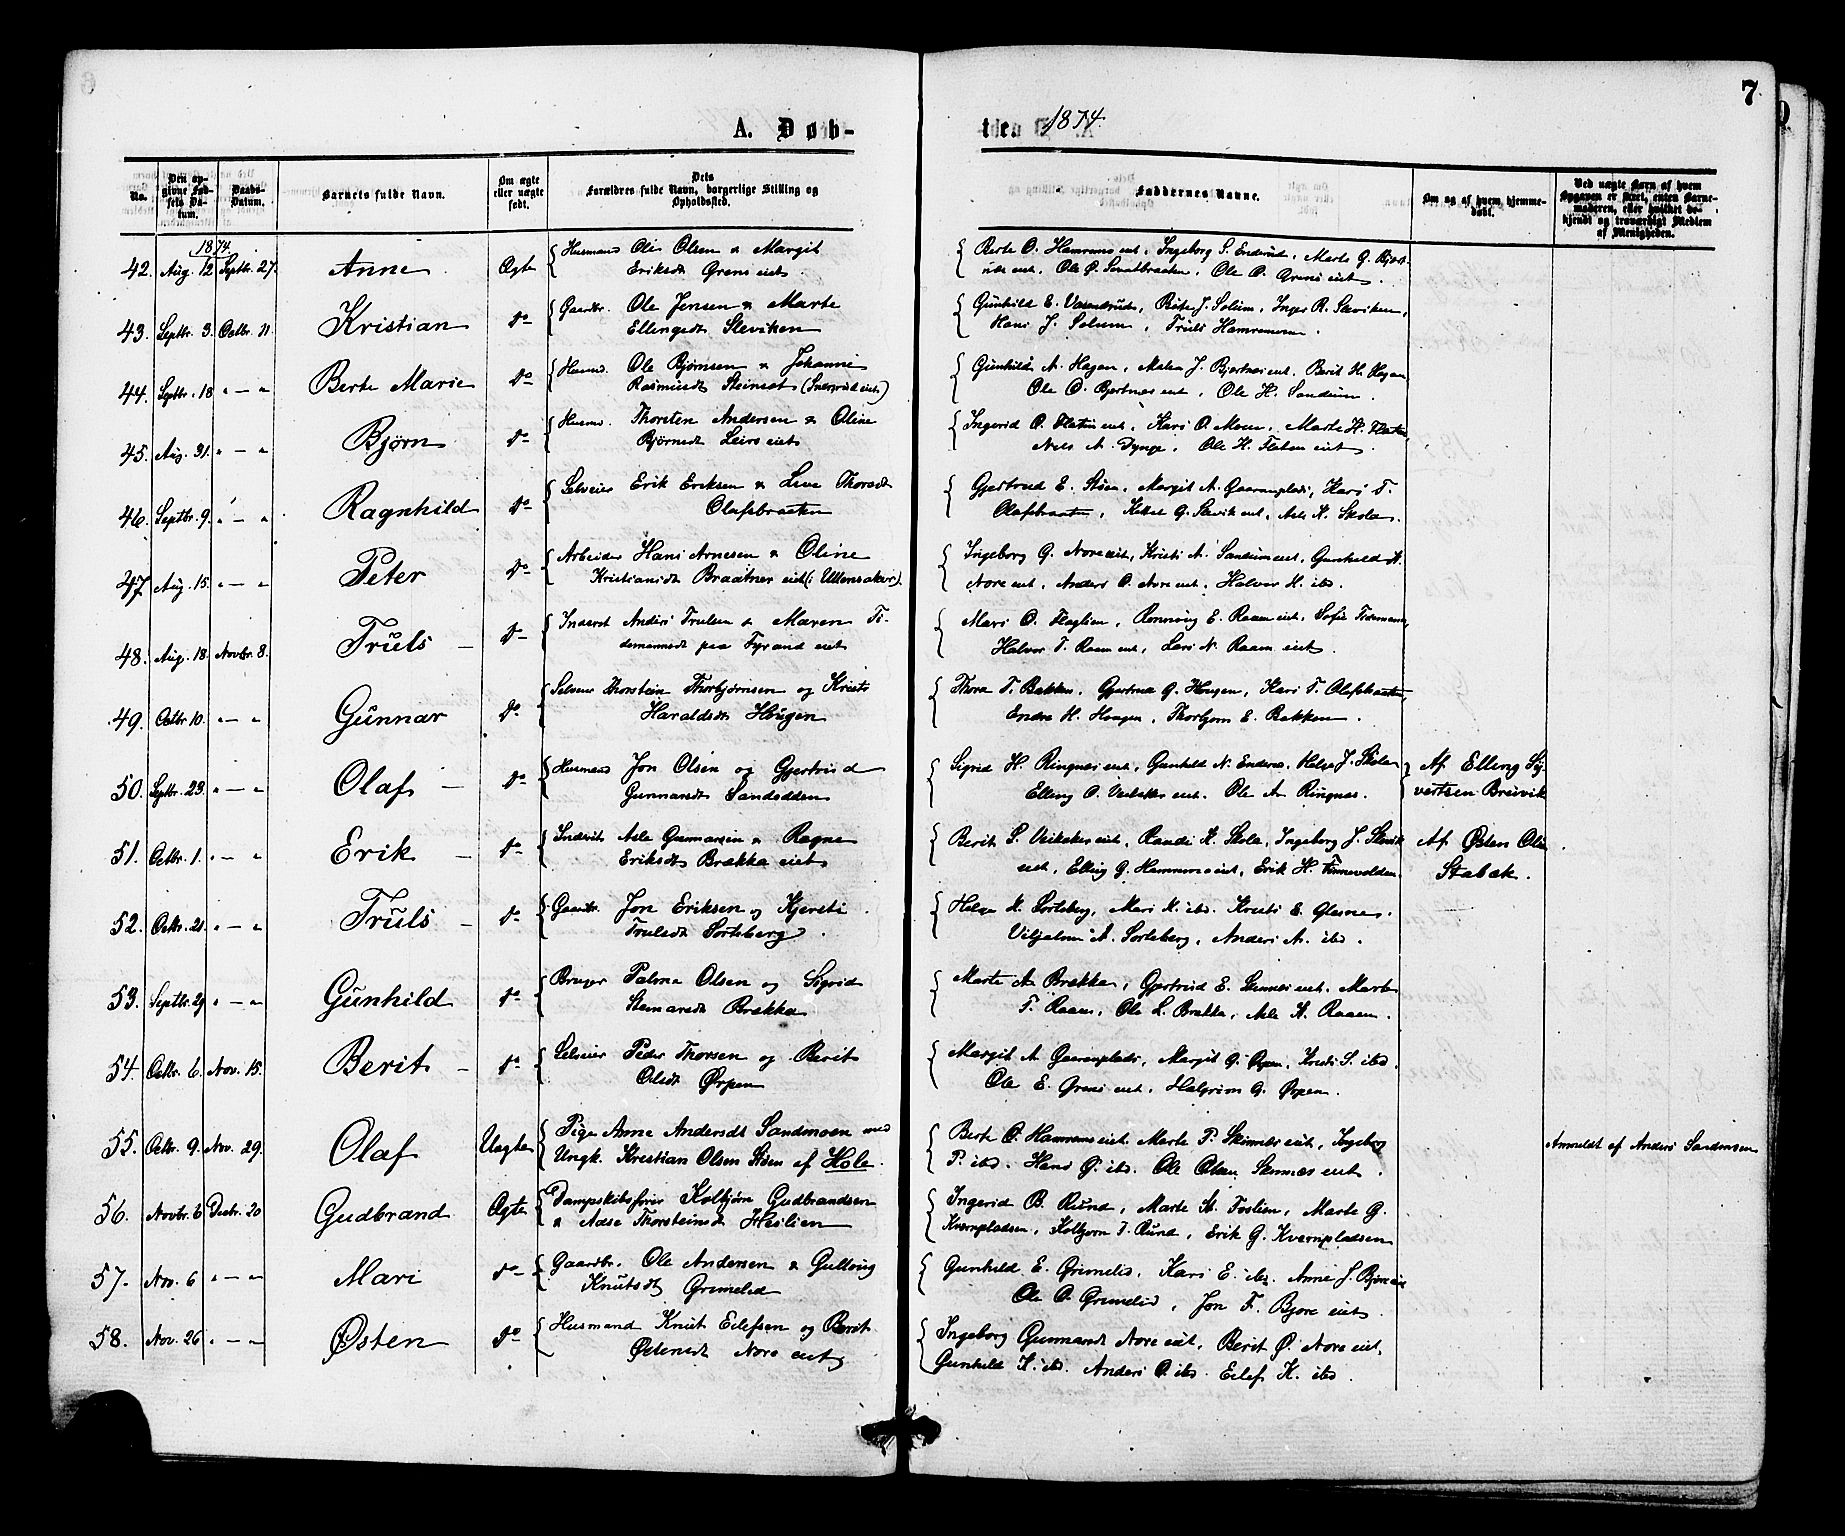 7
A. Døb-
te. 1874.
No.
Den opgivne Fødsels Datum.
Daabs-Datum.
Barnets fulde Navn.
Om ægte eller uægte født.
Dets Forældres fulde Navn, borgerlige Stilling og Opholdssted.
Faddernes Navne.
Om og af hvem hjemmedøbt.
Ved uægte Barn af hvem Opgaven er skeet, enten Barnemoderen, eller hvilket bekjendt og troværdigt Medlem af Menigheden.
1874
42. Aug. 12 Septbr. 27. Anne Ægte Husmand Ole Olsen & Margit
Eriksdt Grøns eiet.
Berte O. Hamrems eiet, Ingeborg S. Enderud, Marte G. Bjert-
nes eiet, Ole O. Ole O. Grøns eiet.
43. Septbr. 3. Octbr. 11. Kristian do Gaardbr. Ole Jensen & Marte
Ellingsdt Sleviken
Gunhild E. J. Solum, Inger R. Sleviken,
Hans J. Solum, Truls Hamremoen.
44. Septbr. 18 " — " Berte Marie do Husmd. Ole Bjørnsen & Johanne
Rasmusdt Steinset
Gunhild A. Hagen, Malen J. Bjertnes eiet, Berit H. Hagen
Ole O. Bjertnes eiet, Ole H. Sandum.
45. Aug. 31. " — " Bjørn do Husmd. Thorsten Andersen & Oline
Bjørnsdt Leirs eiet
Ingerid O. Flaten eiet, Kari O. Moen, Marte H. Flaten,
Nels A. Dynge, Ole H. Flaten eiet.
46. Septbr. 9. " — " Ragnhild do Selveier Erik Eriksen & Live Thorsdt
Olafsbraaten
Gjertrud E. Støen, Margit A. Gaarenplads, Kari T.
Olafsbraaten, Kittel G. Slevik eiet, Asle K. Skola.
47. Aug. 15. " — " Peter do Arbeider Hans Arnesen & Oline
Kristiansdt Braatner eiet (i Ullensaker).
Ingeborg G. Nore eiet, Kristi A. Sandum eiet, Gunhild A.
Nore eiet, Anders O. Nore eiet, Halvor H. ibd.
48. Aug. 18. Novbr. 8. Truls do Inderst Anders Trulsen & Maren Ti-
demannsdt paa Fyrand eiet
Mari O. Flaglien, Rønnaug E. Raaen eiet, Sofie Tidemann,
Halvor T. Raaen eiet, Lars N. Raaen eiet.
49. Octbr. 10. " — " Gunnar do Selveier Thorstein Thorbjørnsen og Kristi
Haraldsdt Haugen
Thora T. Bakken, Gjertrud G. Haugen, Kari T. Olafsbraaten,
Endre H. Haugen, Thorbjørn E. Bakken.
50. Septbr. 23. " — " Olaf do Husmand Jon Olsen og Gjertrud
Gunnarsdt Sandodden
Sigrid H. Ringnes eiet, Gunhild N. Enderud, Helge J. Skola
Elling O. Veikaker eiet. Ole A. Ringnes.
Af Elling Sy-
vertsen Breivik
51. Octbr. 1. " — " Erik do Inderst Asle Gunnarsen & Ragne
Eriksdt Brækka eiet
Berit S. Veikaker eiet, Randi K. Skola, Ingeborg J. Slevik
eiet, Elling G. Hamremo eiet, Erik H. Finnevolden.
Af Østen Ols.
Stabæk.
52. Octbr. 21. " — " Truls do Gaardbr. Jon Eriksen og Kjersti
Trulsdt Sorteberg.
Helge K. Sorteberg, Mari K. ibd. Kristi E. Glesne.
Viljelm A. Sorteberg, Anders A. ibd.
53. Septbr. 29 " — " Gunhild do Bruger Palme Olsen og Sigrid
Steinarsdt Brækka
Marte A. Brækka, Gjertrud E. Skinnes eiet, Marte
T. Raaen, Ole L. Brækka, Asle A. Raaen.
54. Octbr. 6. Nov. 15. Berit do Selveier Peder Thorsen og Berit
Olsdt Ørpen
Margit A. Gaarenplads, Margit G. Ørpen, Kristi S. ibd.
Ole E. Grøns eiet, Halgrim G. Ørpen.
55. Octbr. 9. Nov. 29. Olaf Uægte Pige Anne Andersdt Sandmoen med
Ungk. Krestian Olsen Støen af Hole.
Berte O. Hamrems eiet, Marte P. Skinnes eiet, Ingeborg
P. ibd. Hans O. ibd. Ole Olsen Skinnes eiet.
Anmeldt af Anders Sandmoen
56. Novbr. 6 Decbr. 20 Gudbrand Ægte Dampskibsfører Kolbjørn Gudbrandsen
& Aase Thorsteinsdt Heslien
Ingerid B. Rund, Marte K. Foslien, Marte G.
Kvernpladsen, Kolbjørn I. Rund, Erik G. Kvernpladsen
57. Nov. 6 " — " Mari do Gaardbr. Ole Andersen & Guldvig
Knutsdt Grimelid
Gunhild E. Grimelid, Kari E. ibd. Anne J. Bjøre eiet
Ole O. Grimelid, Jon F. Bjøre eiet.
58. Nov. 26 " — " Østen do Husmand Knut Eilefsen og Berit
Østensdt Nore eiet
Ingeborg Gunnarsdt Nore eiet, Berit Ø. Nore eiet,
Gunhild K. ibd. Anders O. ibd. Eilef K. ibd.